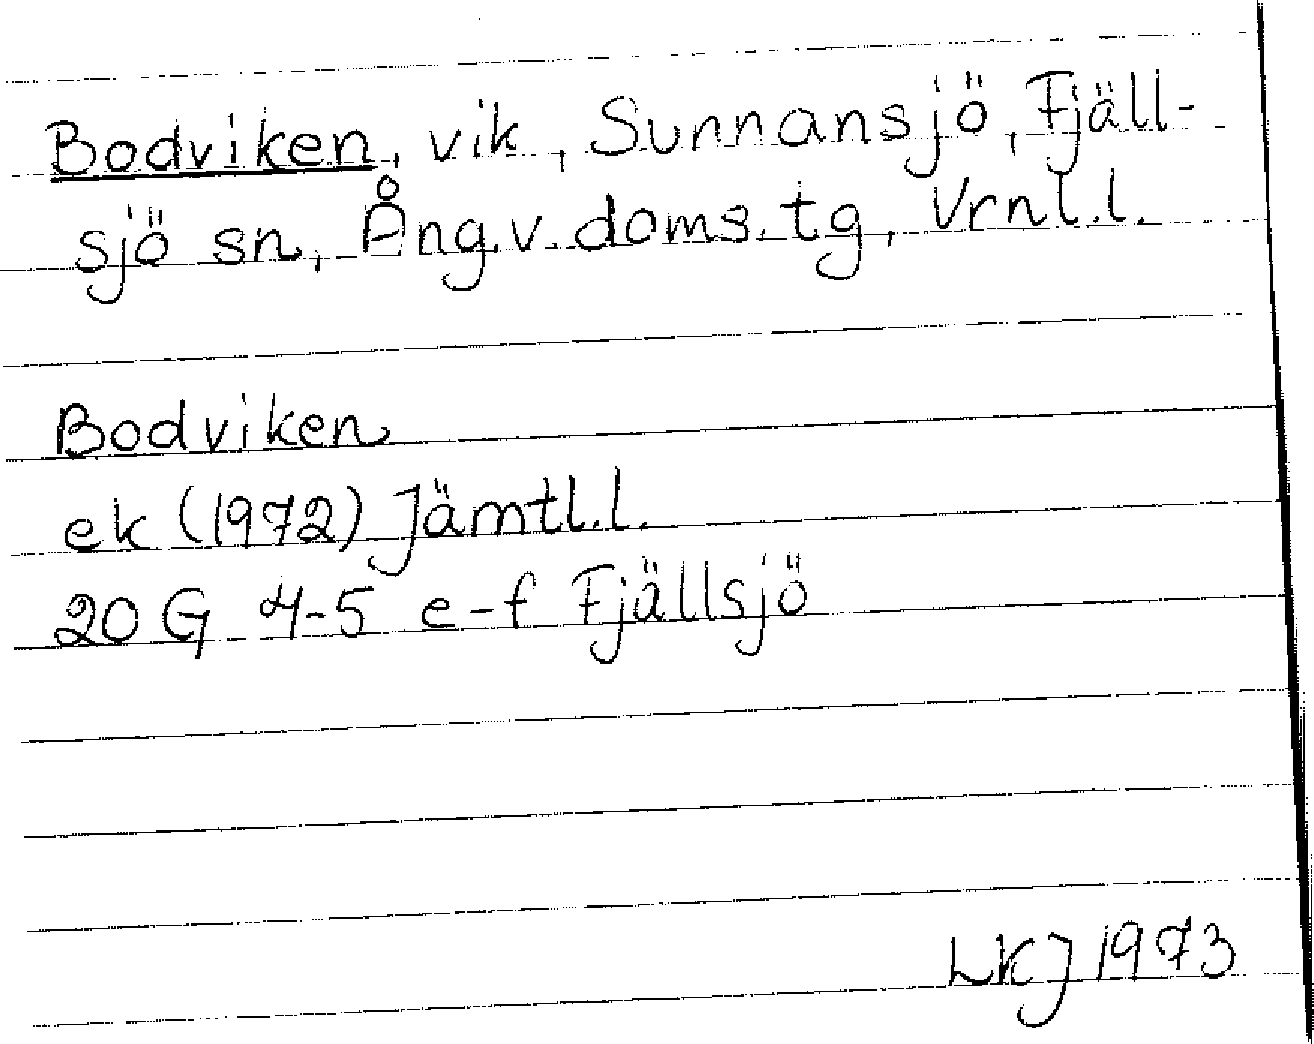 Bodviken, vik, Sunnansjö, Fjäll-
sjö sn, Ång.v. doms. tg, Vrnl.l.
Bodviken
ek (1972) Jämtl.l.
20 G 4-5 e-f Fjällsjö
LKJ 1973